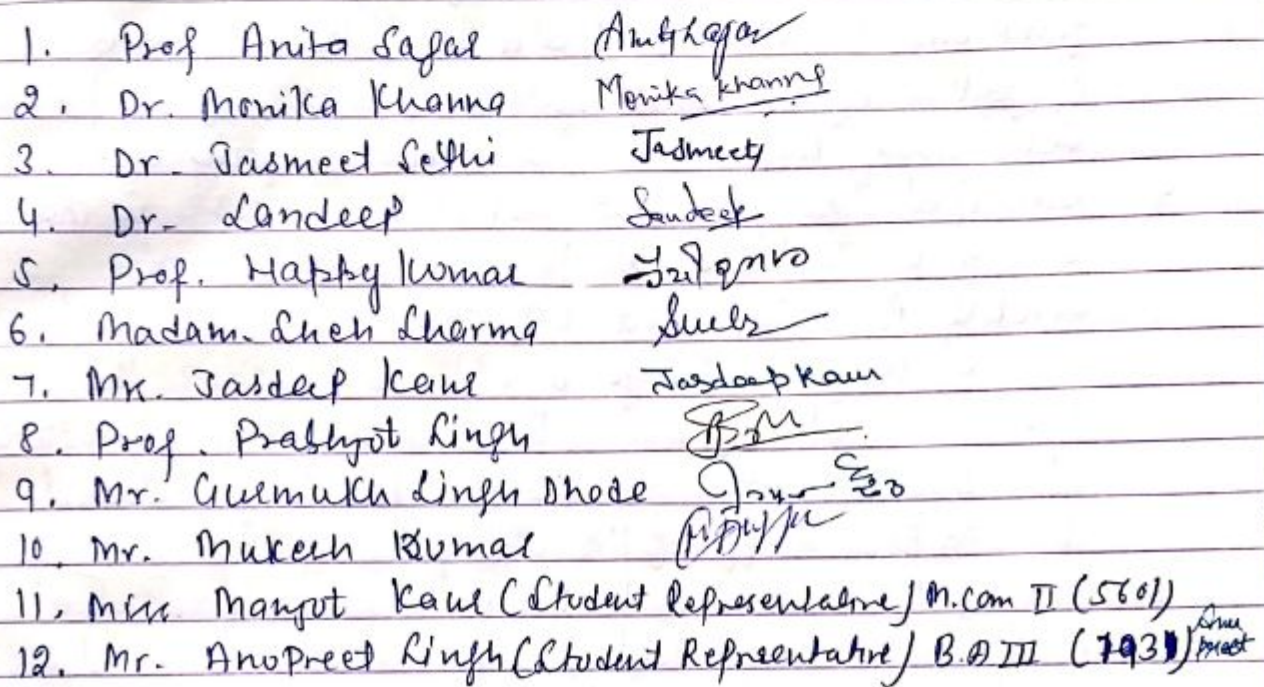 1. Prof Anita Sagar
2. Dr. Monika Khanna Monika Khanna
3. Dr. Jasmeet Sethi Jasmeet
4. Dr. Sandeep Sandeep
5. Prof. Happy Kumar
6. Madam. Sneh Sharma Sneh
7. Mrs. Jasdeep Kaur Jasdeep Kaur
8. Prof. Prabhjot Singh
9. Mr. Gurmukh Singh Dhode
10. Mr. Mukesh Kumar
11. Miss Manjot Kaur (Student Representative) M.Com II (5601)
12. Mr. Anopreet Singh (Student Representative) B.A III (7931) Anu preet